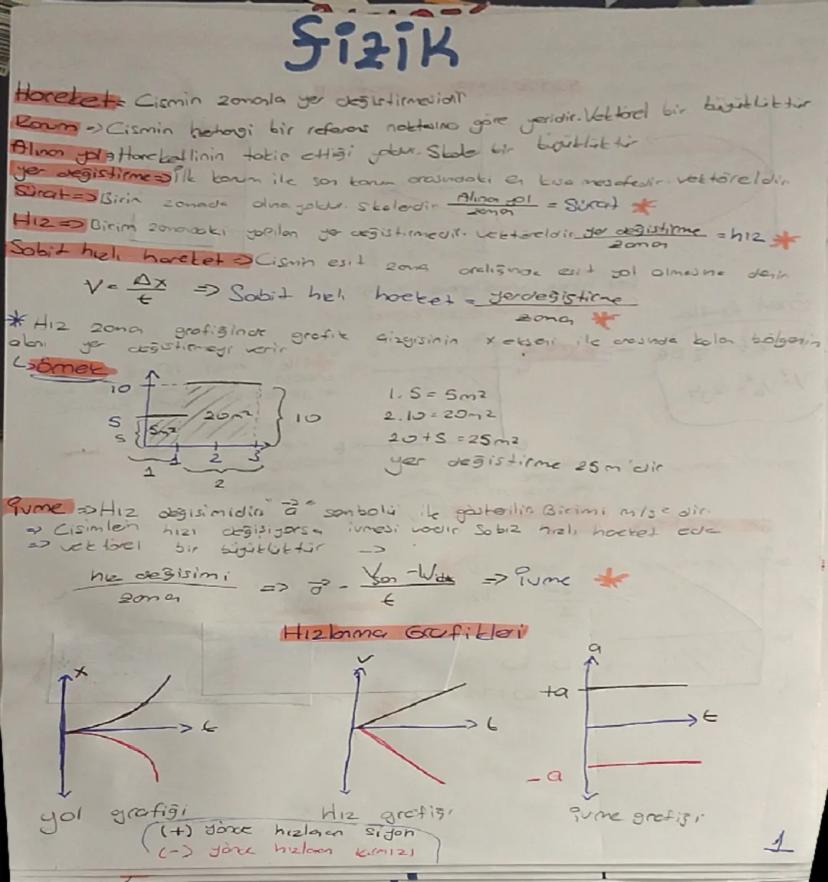 fizik
Hareket = Cismin zamanla yer değiştirmesidir
Konum => Cismin herhangi bir referans noktasına göre yeridir. Vektörel bir büyüklüktür
Alınan yol => Hareketlinin takip ettiği yoldur. Skaler bir büyüklüktür
yer değiştirme => İlk konum ile son konum arasındaki en kısa mesafedir. vektöreldir
Sürat => Birim zamanda alınan yoldur. skalerdir Alınan yol / zaman = Sürat *
Hız => Birim zamandaki yapılan yer değiştirmedir. vektöreldir yer değiştirme / zaman = hız *
Sabit hızlı hareket => Cismin eşit zaman aralığında eşit yol almasına denir
V = Δx / t => Sabit hızlı hareket = yerdeğiştirme / zaman *
* Hız zaman grafiğinde grafik çizgisinin x ekseni ile arasında kalan bölgenin
alanı yer değiştirmeyi verir
örnek
10
5
5
5m²
20m²
10
1 2 3
1
2
1.5 = 5m²
2.10 = 20m²
20+5 = 25m²
yer değiştirme 25m'dir
ivme => Hız değişimidir "a" sembolü ile gösterilir Birimi m/s² dir.
=> Cisimlerin hızı değişiyorsa ivmesi vardır Sabit hızlı hareket
=> vektörel bir büyüklüktür
hız değişimi / zaman => a = Vson - Vilk / t => ivme *
Hızlanma Grafikleri
x
t
v
t
a
+a
t
-a
yol grafiği
Hız grafiği
ivme grafiği
(+) yönde hızlanan siyah
(-) yönde hızlanan kırmızı
1